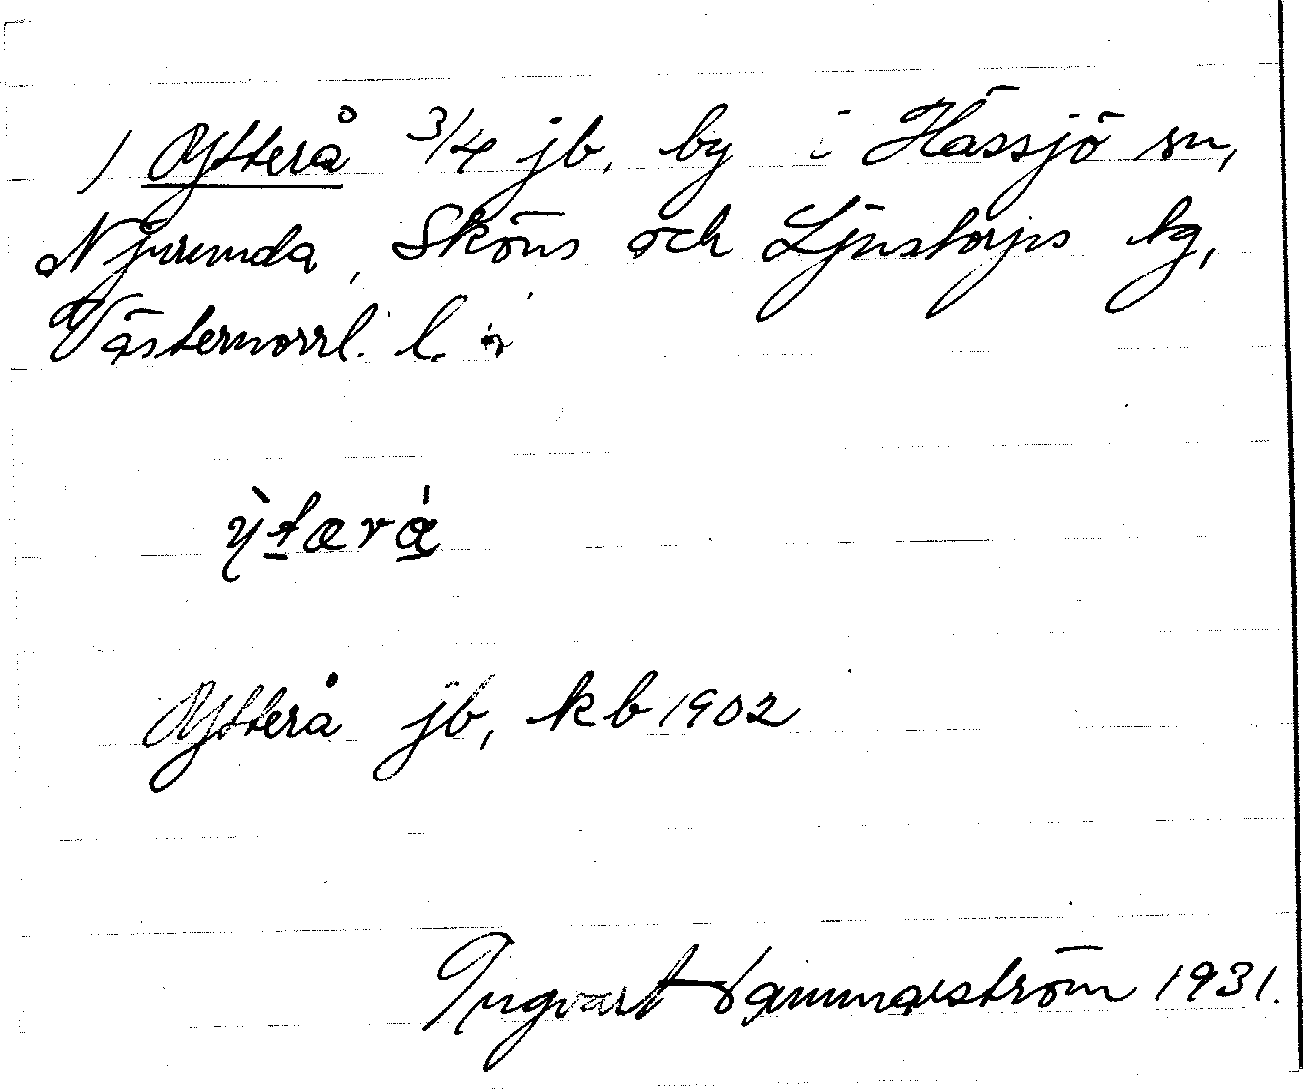 1 Ytterå 3/4 jb, by i Hässjö sn,
Njurunda, Sköns och Ljustorps tg,
Västernorrl. l.
ỳtærå
Ytterå jb, kb 1902
Ingvart 1931.